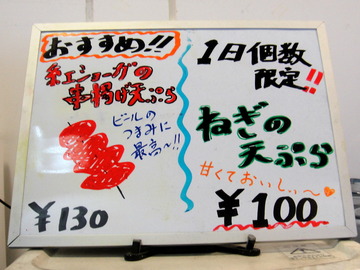 おすすめ!!
紅ショーガの
串揚げ天ぷら
ビールの
つまみに
最高〜!!
¥130
1日個数
限定!!
ねぎの
天ぷら
甘くておいしぃ〜
¥100